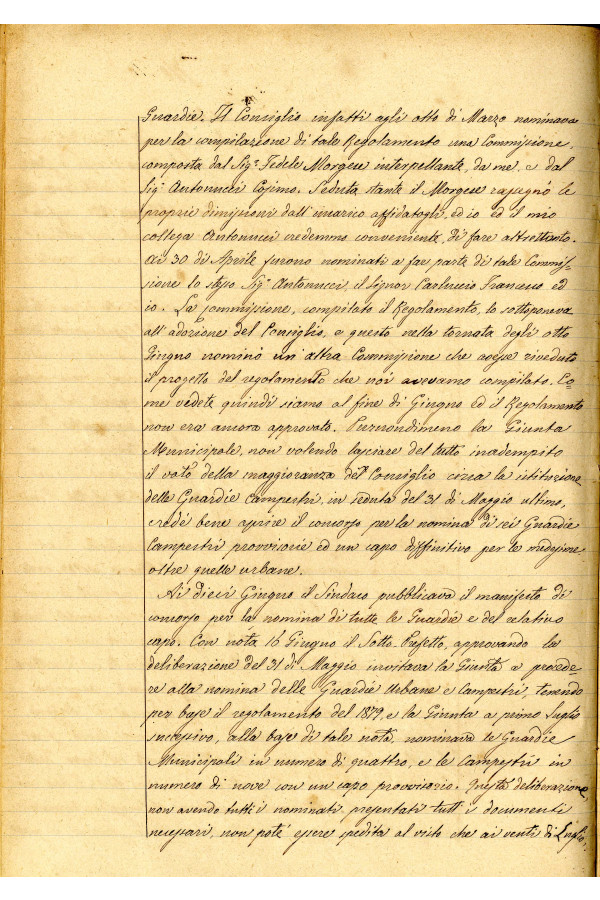 Guardie. Il Consiglio infatti agli otto di Marzo nominava
per la compilazione di tale Regolamento una Commissione,
composta dal Sig.r Fedele Morgese interpellante, da me, e dal
Sig.r Antonucci Cosimo. Seduta stante il Morgese rassegnò le
proprie dimissioni dall'incarico affidatogli, ed io ed il mio
collega Antonucci credemmo conveniente di fare altrettanto.
Ai 30 di Aprile furono nominati a far parte di tale Commis-
sione lo stesso Sig.r Antonucci, il Signor Carluccio Francesco ed
io. La Commissione, compilato il Regolamento, lo sottoponeva
all'adozione del Consiglio, e questo nella tornata degli otto
Giugno nominò un'altra Commissione che avesse riveduto
il progetto del regolamento che noi avevamo compilato. Co-
me vedete quindi siamo al fine di Giugno ed il Regolamento
non era ancora approvato. Purnondimeno la Giunta
Municipale, non volendo lasciare del tutto inadempito
il voto della maggioranza del Consiglio circa la istituzione
delle Guardie Campestri, in seduta del 31 di Maggio ultimo,
credé bene aprire il concorso per la nomina di sei Guardie
Campestri provvisorie ed un capo diffinitivo per le medesime
oltre quelle urbane.
Ai dieci Giugno il Sindaco pubblicava il manifesto di
concorso per la nomina di tutte le Guardie e del relativo
capo. Con nota 16 Giugno il Sotto-Prefetto, approvando la
deliberazione del 31 di Maggio invitava la Giunta a procede-
re alla nomina delle Guardie Urbane e Campestri, tenendo
per base il regolamento del 1879, e la Giunta a primo Luglio
successivo, alla base di tale nota, nominava le Guardie
Municipali in numero di quattro, e le Campestri in
numero di nove con un capo provvisorio. Questa deliberazione,
non avendo tutti i nominati presentati tutt'i documenti
necessari, non poté essere spedita al visto che ai venti di Luglio;